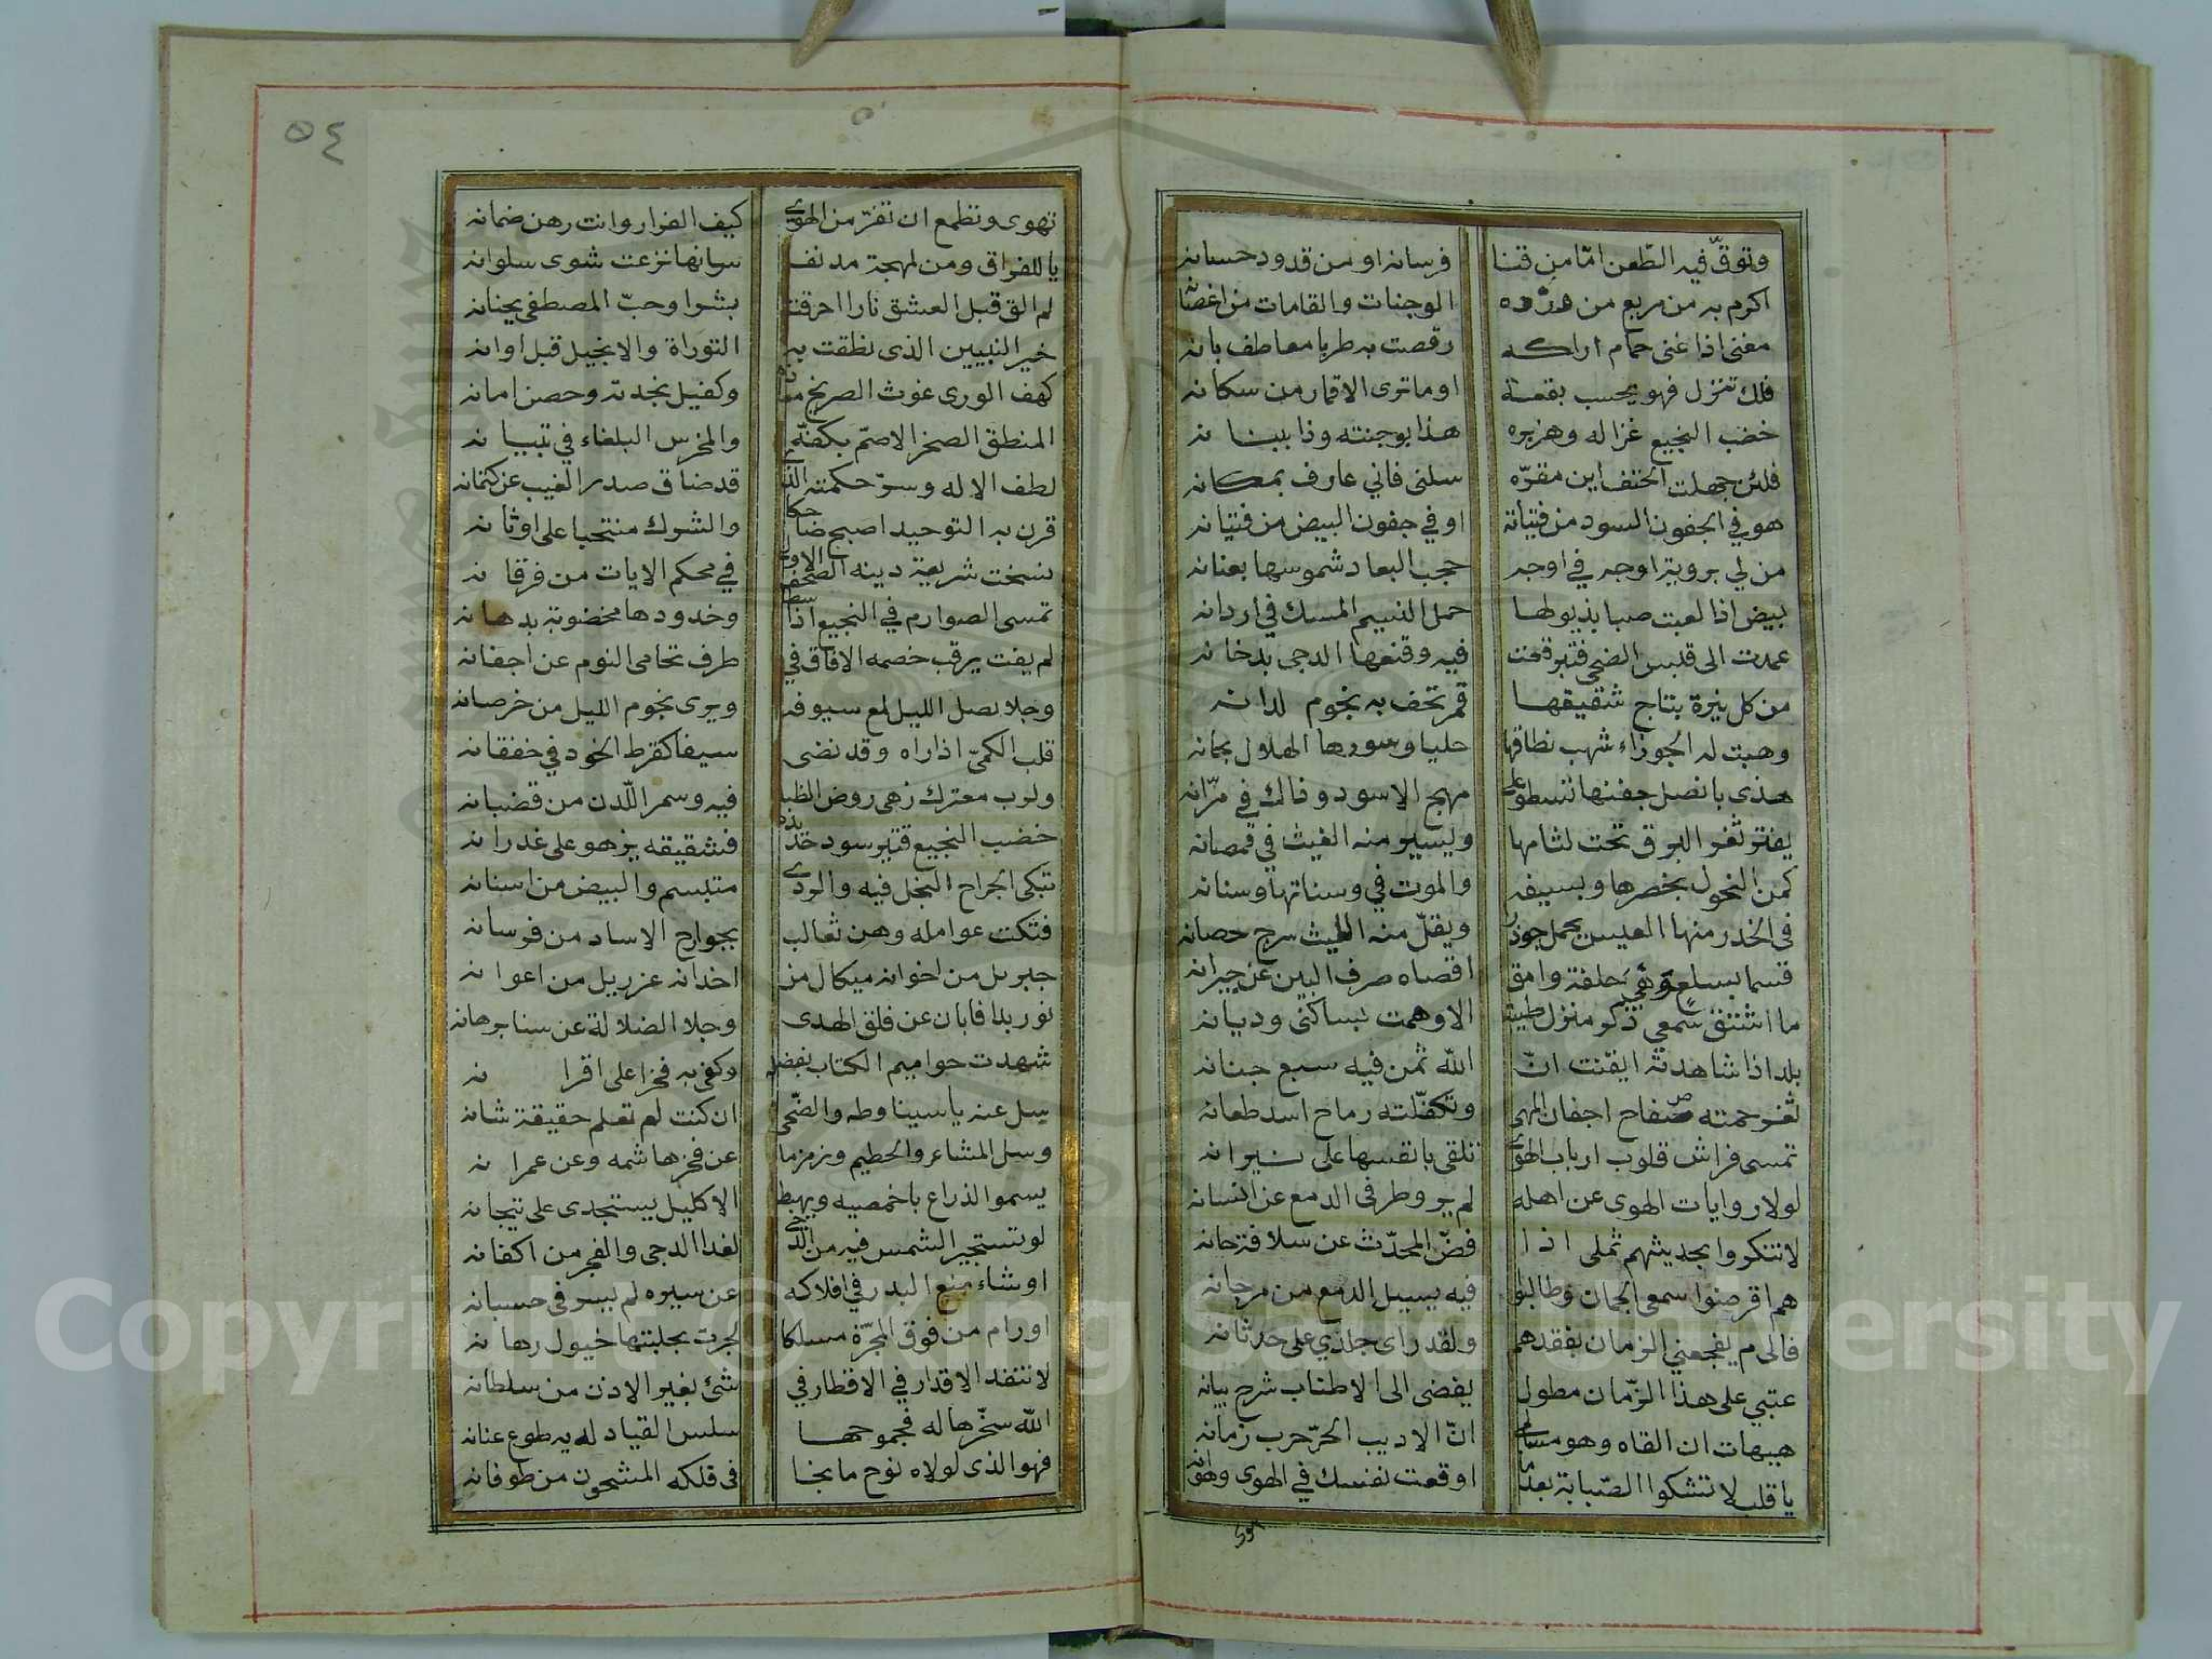 وتوقّ فيه الطّعن امّا من قنا فرسانه او من قدود حسانه
اكرم به من مربع من ورده الوجنات والقامات من اغصانه
مغنى اذا غنى حمام اراكه رقصت به طربا معاطف بانه
فلك تنزل فهو يحسب بقعة او ماترى الاقمار من سكانه
خضب النجيع غزاله وهزبره هذا بوجنته وذا ببنانه
فلئن جهلت الحتف اين مقرّه سلنى فاني عارف بمكانه
هو في الجفون السود من فتياته او في جفون البيض من فتيانه
من لي بروية اوجه في اوجه حجب البعاد شموسها بعنانه
بيض اذا لعبت صبا بذيولها حمل النسيم المسك في اردانه
عمدت الى قبس الضحى فتبرقعت فيه وقنعها الدجى بدخانه
من كل نيرة بتاج شقيقها قمر تحف به نجوم لدانه
وهبت له الجوزاء شهب نطاقها حليا وسورها الهلال بحانه
هذى بانصل جفنها تسطو على مهج الاسود وذاك في مرّانه
يفتر ثغر البرق تحت لثامها ويسير منه الغيث في قمصانه
كمن النحول بخصرها وبسيفه والموت في وسناتها وسنانه
فى الخدر منها العيس يحمل جوذر ويقلّ منه الليث سرج حصانه
قسما بسلع وهي حلفة وامق اقصاه صرف البين عن جيرانه
ما اشتق سمعي ذكر منزل طيبة الا وهمت بساكني ودبانه
بلد اذا شاهدته ايقنت انّ الله ثمن فيه سبع جنانه
ثغر حمته صفاح اجفان المهى وتكفّلته رماح اسد طعانه
تمسى فراش قلوب ارباب الهوى تلقى بانفسها على نيرانه
لولا روايات الهوى عن اهله لم يرو طرفى الدمع عن انسانه
لا تنكروا بحديثهم ثملى اذا فضّ المحدّث عن سلافة حانه
هم اقرضوا سمعى الجمان وطالبوا فيه يسيل الدمع من مرجانه
فالى م يفجعني الزمان بفقدهم ولقد راى جلدي على حدثانه
عتبي على هذا الزّمان مطول يفضى الى الاطناب شرح بيانه
هيهات ان القاه وهو مسالمى انّ الاديب الحرّ حرب زمانه
يا قلب لا تشكوا الصّبابة بعدما اوقعت نفسك في الهوى وهوانه
تهوى
٥٤
تهوى وتطمع ان تفرّ من الهوى كيف الفرار وانت رهن ضمانه
يا للفراق ومن لمهجة مدنف سانها نزعت شوى سلوانه
لم الق قبل العشق نارا احرقت بشرا وحبّ المصطفى بجنانه
خير النبيين الذى نطقت به التوراة والانجيل قبل اوانه
كهف الورى غوث الصريخ معاذه وكفيل نجدته وحصن امانه
المنطق الصخر الاصمّ بكفّه والمخرس البلغاء في تبيانه
لطف الاله وسرّ حكمته الذى قد ضاق صدر الغيب عن كتمانه
قرن به التوحيد اصبح ضاحكا والشرك منتحبا على اوثانه
نسخت شريعة دينه الصحف الاولى في محكم الايات من فرقانه
تمسى الصوارم في النجيع اذا سطا وخدودها مخضوبة بدهانه
لم يفت يرقب خصمه الافاق في طرف تحامى النوم عن اجفانه
وجلا نصل الليل لمع سيوفه ويرى نجوم الليل من خرصانه
قلب الكمىّ اذا راه وقد نضى سيفا كقرط الخود في خفقانه
ولرب معترك زهى روض الظبا فيه وسمر اللّدن من قضبانه
خضب النجيع قتير سود خدّه فشقيقه يزهو على غدرانه
تبكى الجراح النجل فيه والردى متبسم والبيض من اسنانه
فتكت عوامله وهن ثعالب بجوارح الاساد من فرسانه
جبريل من اخوانه ميكال من اخدانه عزريل من اعوانه
نور بدا فابان عن فلق الهدى وجلا الضلالة عن سنا برهانه
شهدت حواميم الكتاب بفضله وكفى به فخرا على اقرانه
سل عنه ياسينا وطه والضّحى ان كنت لم تعلم حقيقة شانه
وسل المشاعر والحطيم وزمزما عن فخر هاشمه وعن عمرانه
يسمو الذراع باخمصيه ويهبط الاكليل يستجدى على تيجانه
لو تستجير الشمس فيه من الدجى لغدا الدجى والفجر من اكفانه
او شاء منع البدر في افلاكه عن سيره لم يسر فى حسبانه
او رام من فوق المجرّة مسلكا لجرت بجلبتها خيول رهانه
لا تنفذ الاقدار في الاقطار في شئ بغير الاذن من سلطانه
الله سخّرها له فجموحها سلس القياد لديه طوع عنانه
فهو الذى لولاه نوح ما نجا فى فلكه المشحون من طوفانه
Copyright © King Saud University